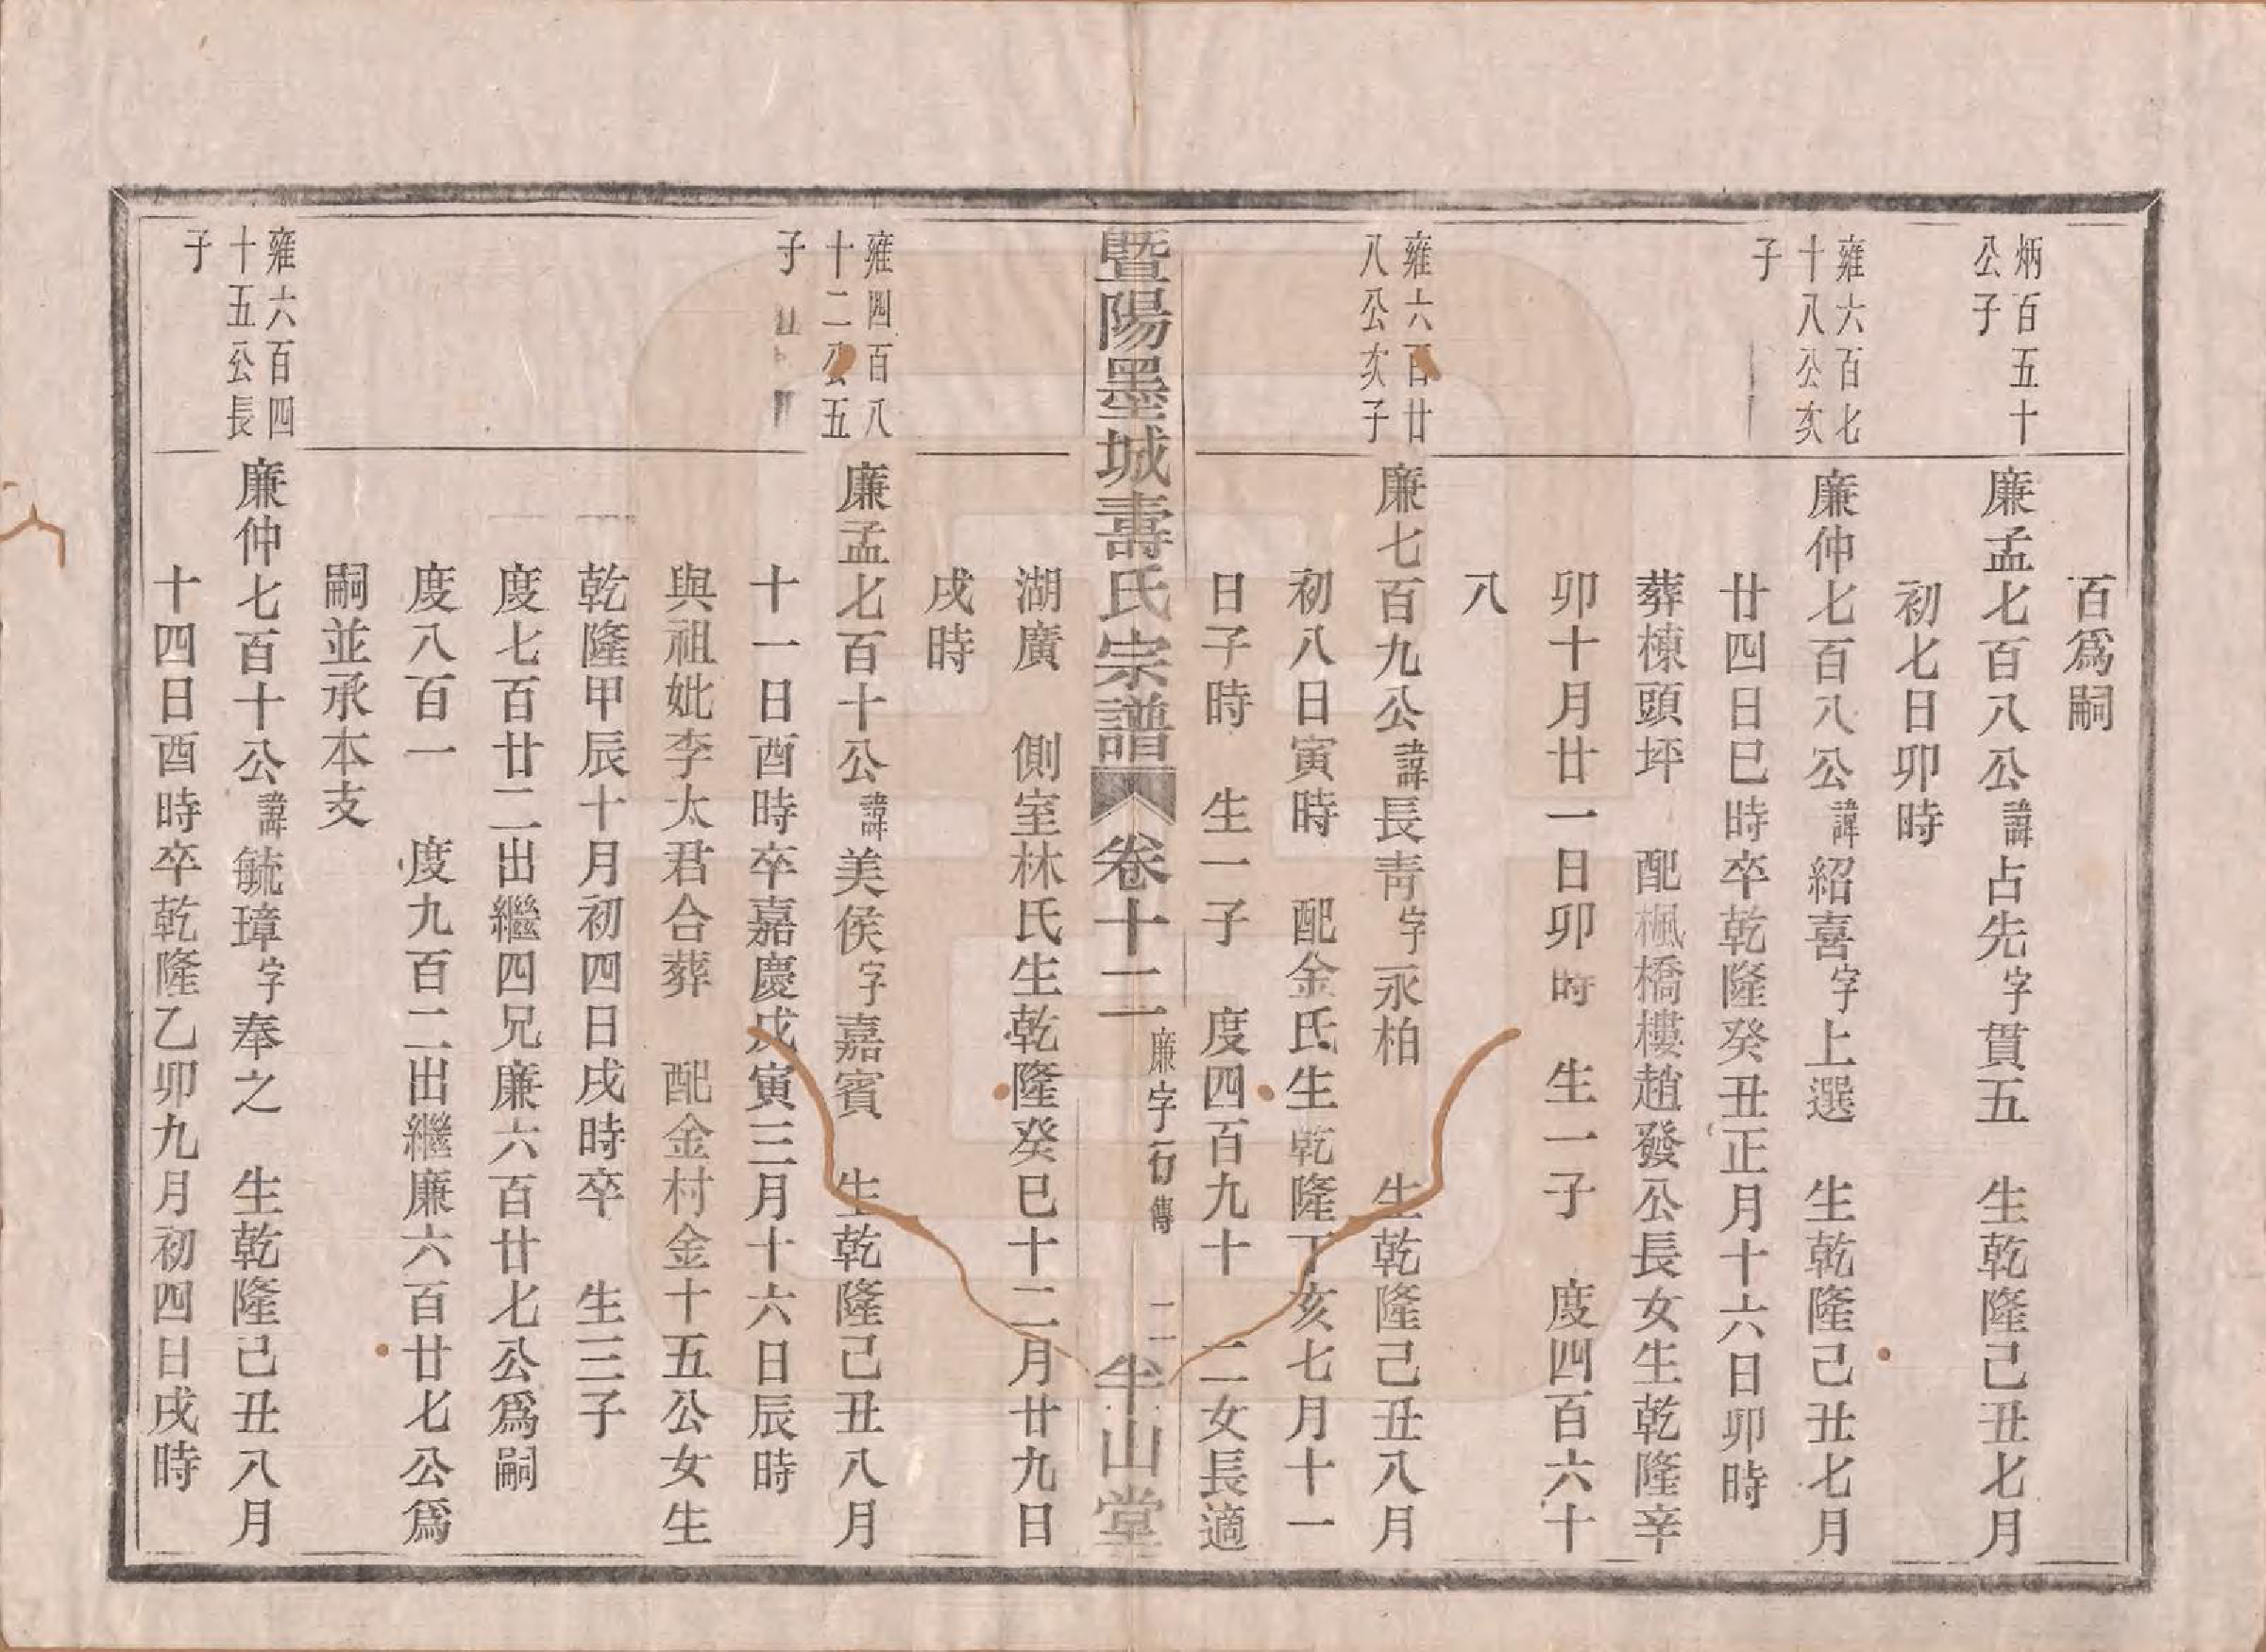 百爲嗣
炳百五十
公子
廉孟七百八公諱占先字貫五　生乾隆己丑七月
初七日卯時
雍六百七
十八公次
子
廉仲七百八公諱紹喜字上選　生乾隆己丑七月
廿四日巳時卒乾隆癸丑正月十六日卯時
葬棟頭坪　配楓橋樓趙發公長女生乾隆辛
卯十月廿一日卯時　生一子　度四百六十
八
雍六百廿
八公次子
廉七百九公諱長靑字永柏　生乾隆己丑八月
初八日寅時　配金氏生乾隆丁亥七月十一
日子時　生一子　度四百九十　二女長適
暨陽墨城壽氏宗譜　卷十二　廉字行傳　二　半山堂
湖廣　側室林氏生乾隆癸巳十二月廿九日
戌時
雍四百八
十二公五
子
廉孟七百十公諱美侯字嘉賓　生乾隆己丑八月
十一日酉時卒嘉慶戊寅三月十六日辰時
與祖妣李太君合葬　配金村金十五公女生
乾隆甲辰十月初四日戌時卒　生三子
度七百廿二出繼四兄廉六百廿七公爲嗣
度八百一　度九百二出繼廉六百廿七公爲
嗣並承本支
雍六百四
十五公長
子
廉仲七百十公諱毓璋字奉之　生乾隆己丑八月
十四日酉時卒乾隆乙卯九月初四日戌時